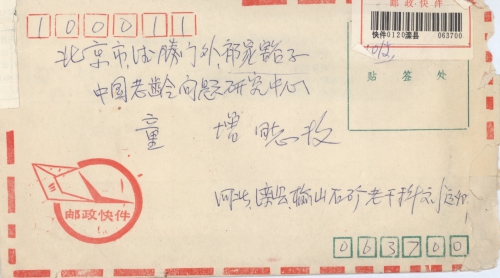 100011
邮政·快件
快件0120滦县 063700
贴签处
北京市德胜门外，祁家豁子
中国老龄问题研究中心
童 增 同志收
河北，滦县，榆山石矿老干科
邮政快件
063700